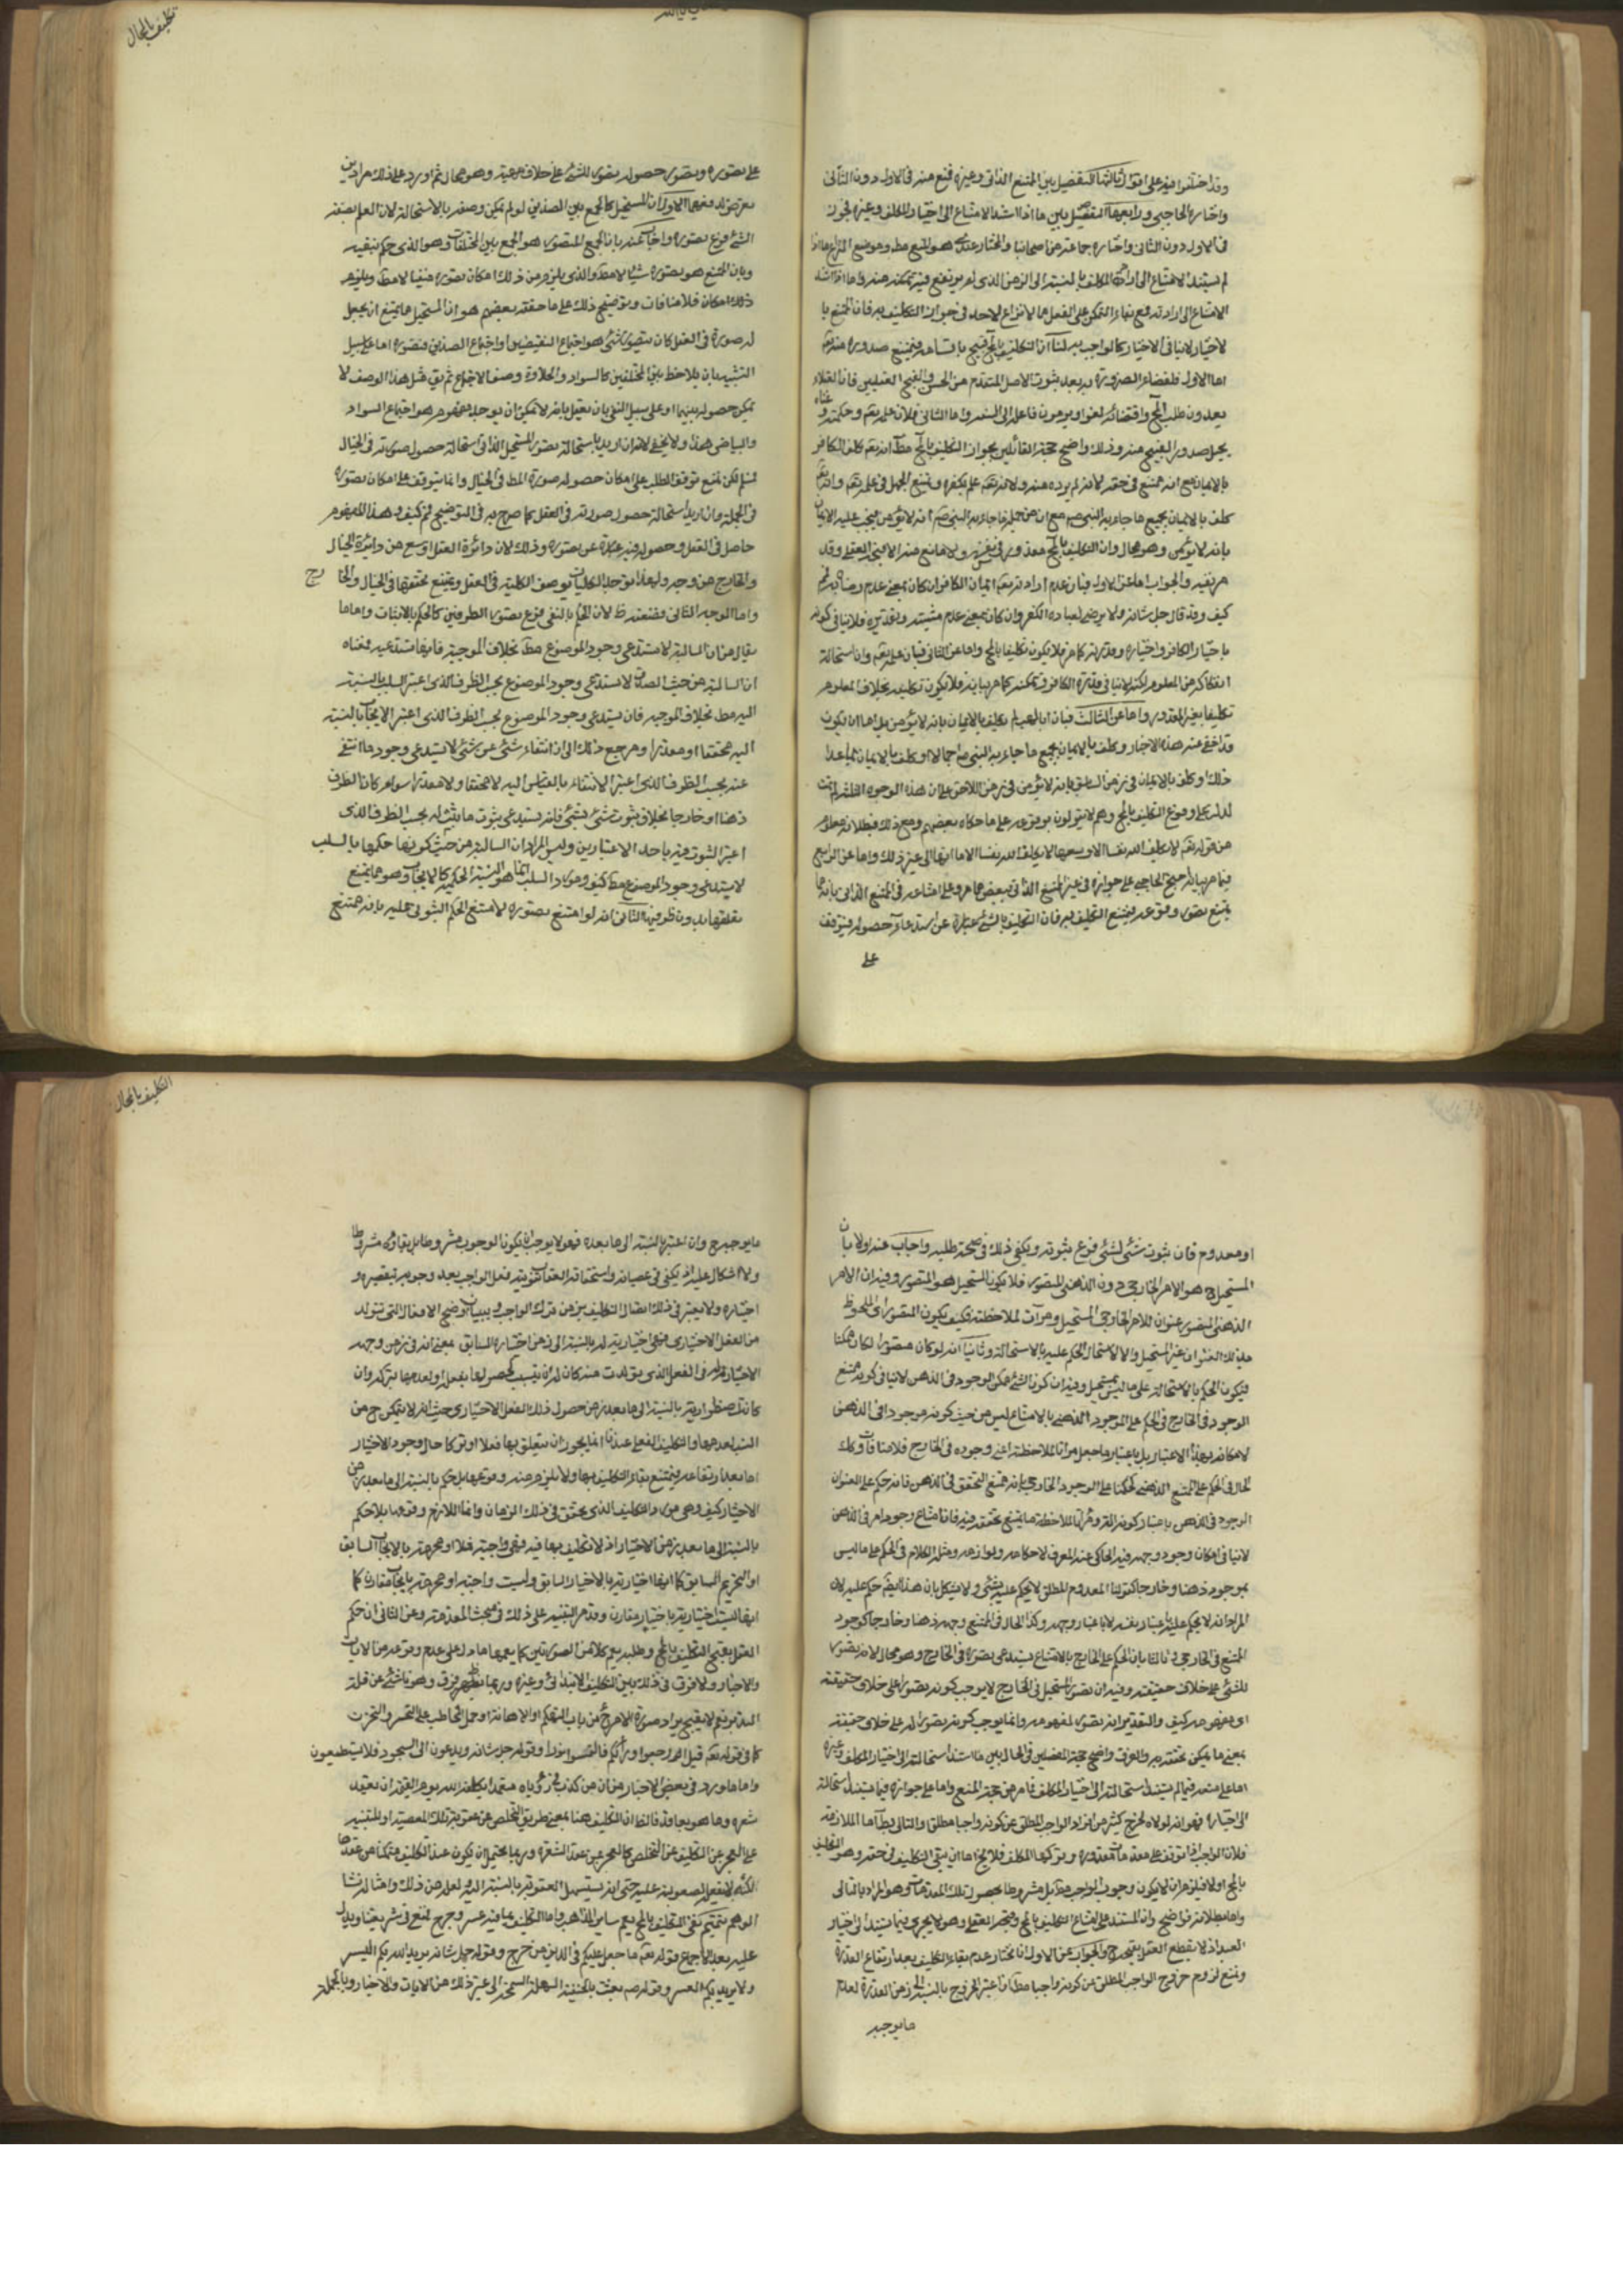 وقد اختلفوا فيه على اقوال ثالثها التفصيل بين الممتنع الذاتى وغيره فمنع منه فى الاول دون الثانى
واختاره الحاجبى ورابعها التفصيل بين ما اذا استند الامتناع الى اختيار المكلف وغيره فجوز
فى الاول دون الثانى واختاره جماعة من اصحابنا والمختار عندى هو المنع مط وموضع النزاع ما اذا
لم يستند الامتناع الى ارادة المكلف بالنسبة الى الزمن الذى لم يرتفع فيه تمكنه منه واما اذا استند
الامتناع الى ارادته مع بقاء التمكن على الفعل مما لا نزاع لاحد فى جواز التكليف به فان الممتنع با
لاختيار لا ينافى الاختيار كالواجب به لنا ان التكليف بالمح قبيح باقسامه فيمتنع صدوره منه تع
اما الاول فلقضاء الضرورة به بعد ثبوت الاصل المتقدم من الحسن والقبح العقليين فان العقلاء
يعدون طلب المح واقتضائه لغوا ويرمون فاعله الى السفه واما الثانى فلان علمه تعم وحكمته و غناه
يحيل صدور القبيح منه وذلك واضح حجة القائلين بجواز التكليف بالمح مط انه تعم كلف الكافر
بالايمان مع انه ممتنع فى حقه لانه لم يرده منه ولانه تعم علم بكفره ويمتنع الجهل فى علمه تعم وانه تعم
كلف بالايمان بجميع ما جاء به النبى صم مع ان من جملة ما جاء به النبى صم انه لا يؤمن فيجب عليه الايمان
بانه لا يؤمن وهو محال وان التكليف بالمح مقدور فى نفسه ولا مانع منه الا القبح العقلى وقد
مر نفيه والجواب اما عن الاول فبان عدم ارادته تعم ايمان الكافر ان كان بمعنى عدم رضاه به فمم
كيف وقد قال جل شانه ولا يرضى لعباده الكفر وان كان بمعنى عدم مشيته وتقديره فلا ينافى كونه
باختيار الكافر واختياره وقدرته كما مر فلا يكون تكليفا بالمح واما عن الثانى فبان علمه تعم وان استحالة
انفكاكه عن المعلوم لكنه لا ينافى قدرة الكافر وتمكنه كما مر بيانه فلا يكون تكليفه بخلاف المعلوم
تكليفا بغير المقدور واما عن الثالث فبان ابا لهب لم يكلف بالايمان بانه لا يؤمن بل اما ان يكون
قد اخفى عنه هذه الاخبار وكلف بالايمان بجميع ما جاء به النبى ص اجمالا او كلف بالايمان بما عدا
ذلك او كلف بالايمان فى زمن السابق بانه لا يؤمن فى زمن اللاحق على ان هذه الوجوه الثلثة لو تمت
لدلت على وقوع التكليف بالمح وهم لا يقولون بوقوعه على ما حكاه بعضهم ومع ذلك فبطلانه معلوم
من قوله تعم لا يكلف الله نفسا الا وسعها لا يكلف الله نفسا الا ما اتيها الى غير ذلك واما عن الرابع
فبما مر بيانه احتج الحاجبى على جوازه فى غير الممتنع الذاتى ببعض ما مر وعلى امتناعه فى الممتنع الذاتى بانه مما
يمتنع تصور وقوعه فيمتنع التكليف به فان التكليف بالشئ عبارة عن استدعاء حصوله فيتوقف
على
تكليف بالمحال
على تصوره وتصور حصوله تصور للشئ على خلاف مهيته وهو محال ثم اورد على ذلك ايرادين
تعرض لدفعهما الاول ان المستحيل كالجمع بين الضدين لو لم يمكن وصفه بالاستحالة لان العلم بصفة
الشئ فرع تصوره واجاب عنه بان الجمع المتصور هو الجمع بين المختلفات وهو الذى حكم بنفيه
وبان الممتنع هو تصوره مثبتا لا مط والذى يلزم من ذلك امكان تصوره منفيا لا مط ويلزم
ذلك امكان فلا منافات وتوضيح ذلك على ما حققه بعضهم هو ان المستحيل مما يمتنع ان يحصل
له صورة فى العقل كان يتصور شئ هو اجتماع النقيضين او اجتماع الضدين فتصوره اما على سبيل
التشبيه بان يلاحظ بين المختلفين كالسواد والحلاوة وصف الاجتماع ثم بقى مثل هذا الوصف لا
يمكن حصوله بينهما او على سبيل النفى بان يعقل بانه لا يمكن ان يوجد مفهوم هو اجتماع السواد
والبياض هذا ولا يخفى لانه ان اريد باستحالة تصور المستحيل الذاتى استحالة حصول صورته فى الخيال
فمسلم لكن نمنع توقف الطلب على امكان حصول صورة المط فى الخيال وانما يتوقف على امكان تصوره
فى الجملة وان اريد استحالة حصول صورته فى العقل كما صرح به فى التوضيح فمم كيف وهذا المفهوم
حاصل فى العقل وحصوله فيه عبارة عن تصوره وذلك لان دائرة العقل اوسع من دائرة الخيال
والخارج من وجه ولهذا يوجد الكليات بوصف الكلية فى العقل ويمتنع تحققها فى الخيال والخارج
واما الوجه الثانى فضعفه ظ لان الحكم بالنفى فرع تصور الطرفين كالحكم بالاثبات واما ما
يقال من ان السالبة لا تستدعى وجود الموضوع مط بخلاف الموجبة فانها تستدعيه فمعناه
ان السالبة من حيث الصدق لا تستدعى وجود الموضوع بحسب الظرف الذى اعتبر السلب بالنسبة
اليه مط بخلاف الموجبة فانه يستدعى وجود الموضوع بحسب الظرف الذى اعتبر الايجاب بالنسبة
اليه محققا او مقدرا ومرجع ذلك الى ان انتفاء شئ عن شئ لا يستدعى وجود ما انتفى
عنه بحسب الظرف الذى اعتبر الانتفاء بالقياس اليه لا محققا ولا مقدرا سواء كان الظرف
ذهنا او خارجا بخلاف ثبوت شئ لشئ فانه يستدعى ثبوت ما يثبت له بحسب الظرف الذى
اعتبر الثبوت فيه باحد الاعتبارين وليس المراد ان السالبة من حيث كونها حكمها بالسلب
لا يستدعى وجود الموضوع مط كيف ومورد السلب انما هو النسبة الحكمية كالايجاب وهو مما يمتنع
تعقلها بدون طرفيها الثانى انه لو امتنع تصوره لامتنع الحكم الثبوتى عليه بانه ممتنع
او معدوم فان ثبوت شئ لشئ فرع ثبوته ويكفى ذلك فى صحة طلبه واجاب عنه اولا بان
المستحيل هو الامر الخارجى دون الذهنى المتصور فلا يكون المستحيل هو المتصور وفيه ان الامر
الذهنى المتصور عنوان للامر الخارجى المستحيل ومرآت لملاحظته فكيف يكون المتصور اى الملحوظ
بذلك العنوان غير المستحيل والا لاستحال الحكم عليه بالاستحالة وثانيا انه لو كان متصورا لكان ممكنا
فيكون الحكم بالاستحالة على ما ليس بمستحيل وفيه ان كون الشئ ممكن الوجود فى الذهن لا ينافى كونه ممتنع
الوجود فى الخارج فى الحكم على الموجود الذهنى بالامتناع ليس من حيث كونه موجودا فى الذهن
لامكانه بهذا الاعتبار بل باعتبار ما جعل مرآتا لملاحظته اعنى وجوده فى الخارج فلا منافات وكك
الحال فى الحكم على الممتنع الذهنى كحكمنا على الموجود الخارجى بانه ممتنع التحقق فى الذهن فانه حكم على العنوان
الموجود فى الذهن باعتبار كونه آلة ومرآتا لملاحظة ما يمتنع تحققه فيه فان امتناع وجود امر فى الذهن
لا ينافى امكان وجود وجهه فيه الحاكى عنه المعرف لاحكامه ولوازمه ومثله الكلام فى الحكم على ما ليس
بموجود ذهنا وخارجا كقولنا المعدوم المطلق لا يحكم عليه بشئ ولا يشكل بان هذا ايضا حكم عليه لان
المراد انه لا يحكم عليه باعتبار نفسه لا باعتبار وجهه وكذا الحال فى الممتنع وجوده ذهنا وخارجا كوجود
الممتنع فى الخارجى وثالثا بان الحكم على الخارج بالامتناع يستدعى تصوره فى الخارج وهو محال لانه تصور
للشئ على خلاف حقيقته وفيه ان تصور المستحيل فى الخارج لا يوجب كونه تصورا على خلاف حقيقته
اى مفهومه كيف والتقدير انه تصور لمفهومه وانما يوجب كونه تصورا له على خلاف حقيقته
بمعنى ما يمكن تحققه به والفرق واضح حجة المفصلين فى المحال بين ما استند استحالته الى اختيار المكلف وغيره
اما على منعه فيما لم يستند استحالته الى اختيار المكلف فما مر من حجة المنع واما على جوازه فيما يستند استحالته
الى اختياره فهو انه لولاه لخرج كثير من افراد الواجب المطلق عن كونه واجبا مطلق والتالى بط اما الملازمة
فلان الواجب اذا توقف على مقدمات مقدورة وتركها المكلف فلا يخ اما ان يبقى التكليف فى حقه وهو التكليف
بالمح او لا فيلزم ان لا يكون وجوب الواجب مط بل مشروطا بحصول تلك المقدمات وهو المراد بالتالى
واما بطلانه فواضح وان المستند على امتناع التكليف بالمح وقبحه العقلى وهو لا يجرى فيما يستند الى اختيار
العبد اذ لا يقطع العقل بقبحه ح والجواب عن الاول انا نختار عدم بقاء التكليف بعد ارتفاع القدرة
ونمنع لزوم خروج الواجب المطلق عن كونه واجبا مط ان اعتبر الخروج بالنسبة الى زمن القدرة لعدم
ما يوجبه
التكليف بالمحال
ما يوجبه ح وان اعتبر بالنسبة الى ما بعده فهو لا يوجب ان يكون الوجوب مشروطا بل بقاؤه مشروطا
ولا اشكال عليه اذ يكفى فى عصيانه واستحقاقه العقاب تفويته فعل الواجب بعد وجوبه بتقصيره و
اختياره ولا يعتبر فى ذلك اتصال التكليف بزمن ترك الواجب وبيان توضح الافعال التى تتولد
من الفعل الاختيارى فهى اختيارية له بالنسبة الى زمن اختياره السابق بمعنى انه فى زمن وجود
الاختيار قادر فى الفعل الذى يتولدت منه كان له ان يتسبب لحصولها بفعله او لعدمها بتركه وان
كانت اضطرارية بالنسبة الى ما بعده من حصول ذلك الفعل الاختيارى حيث انه لا يتمكن ح من
التسبب لعدمها والتكليف الفعلى عندنا انما يجوز ان يتعلق بها فعلا او تركا حال وجود الاختيار
اما بعد ارتفاعه فيمتنع بقاء التكليف بها ولا يلزم منه وقوعها بلا حكم بالنسبة الى ما بعد زمن
الاختيار كيف وهى مورد التكليف الذى يحقق فى ذلك الزمان وانما اللازم وقوعها بلا حكم
بالنسبة الى ما بعد زمن الاختيار اذ لا تكليف بها فيه فهى واجبة فعلا او محرمة بالايجاب السابق
او التحريم السابق كما انها اختيارية بالاختيار السابق وليست واجبة او محرمة بايجاب مقارن كما
انها ليست اختيارية باختيار مقارن وقد مر التنبيه على ذلك فى مبحث المقدمة وعن الثانى ان حكم
العقل بقبح التكليف بالمح وطلبه يعم كلا من الصورتين كما يعمها ما دل على عدم وقوعه من الايات
والاخبار ولا فرق فى ذلك بين التكليف الابتدائى وغيره وربما يظهر فرق وهو ناشئ عن قلة
التدبر نعم لا يقبح ايراد صورة الامر ح من باب التهكم او الاهانة او حمل المخاطب على التحسر والتحزن
كما فى قوله تعم قيل لهم ارجعوا وراءكم فالتمسوا نورا وقوله جل شانه ويدعون الى السجود فلا يستطيعون
واما ما ورد فى بعض الاخبار من ان من كذب فى رؤياه متعمدا يكلفه الله يوم القيمة ان يعقد
شعرة وما هو بعاقد فالظ ان التكليف هنا بمعنى طريق التخلص عن عقوبة تلك المعصية او للتنبيه
على العجز عن التكليف عن التخلص كالعجز عن عقد الشعرة وربما يحتمل ان يكون عند التكليف متمكنا من عقدها
لكنه لا يفعل لصعوبته عليه حتى انه يستسهل العقوبة بالنسبة اليه ولعله من ذلك وامثاله نشا
الوهم تتميم نفى التكليف بالمح يعم ساير المذاهب واما التكليف بما فيه عسر وحرج فمنع فى شريعتنا ويدل
عليه بعد الاجماع قوله تعم ما جعل عليكم فى الدين من حرج وقوله جل شانه يريد الله بكم اليسر
ولا يريد بكم العسر وقوله صم بعثت بالحنيفية السهلة السمحة الى غير ذلك من الايات والاخبار وبالجملة